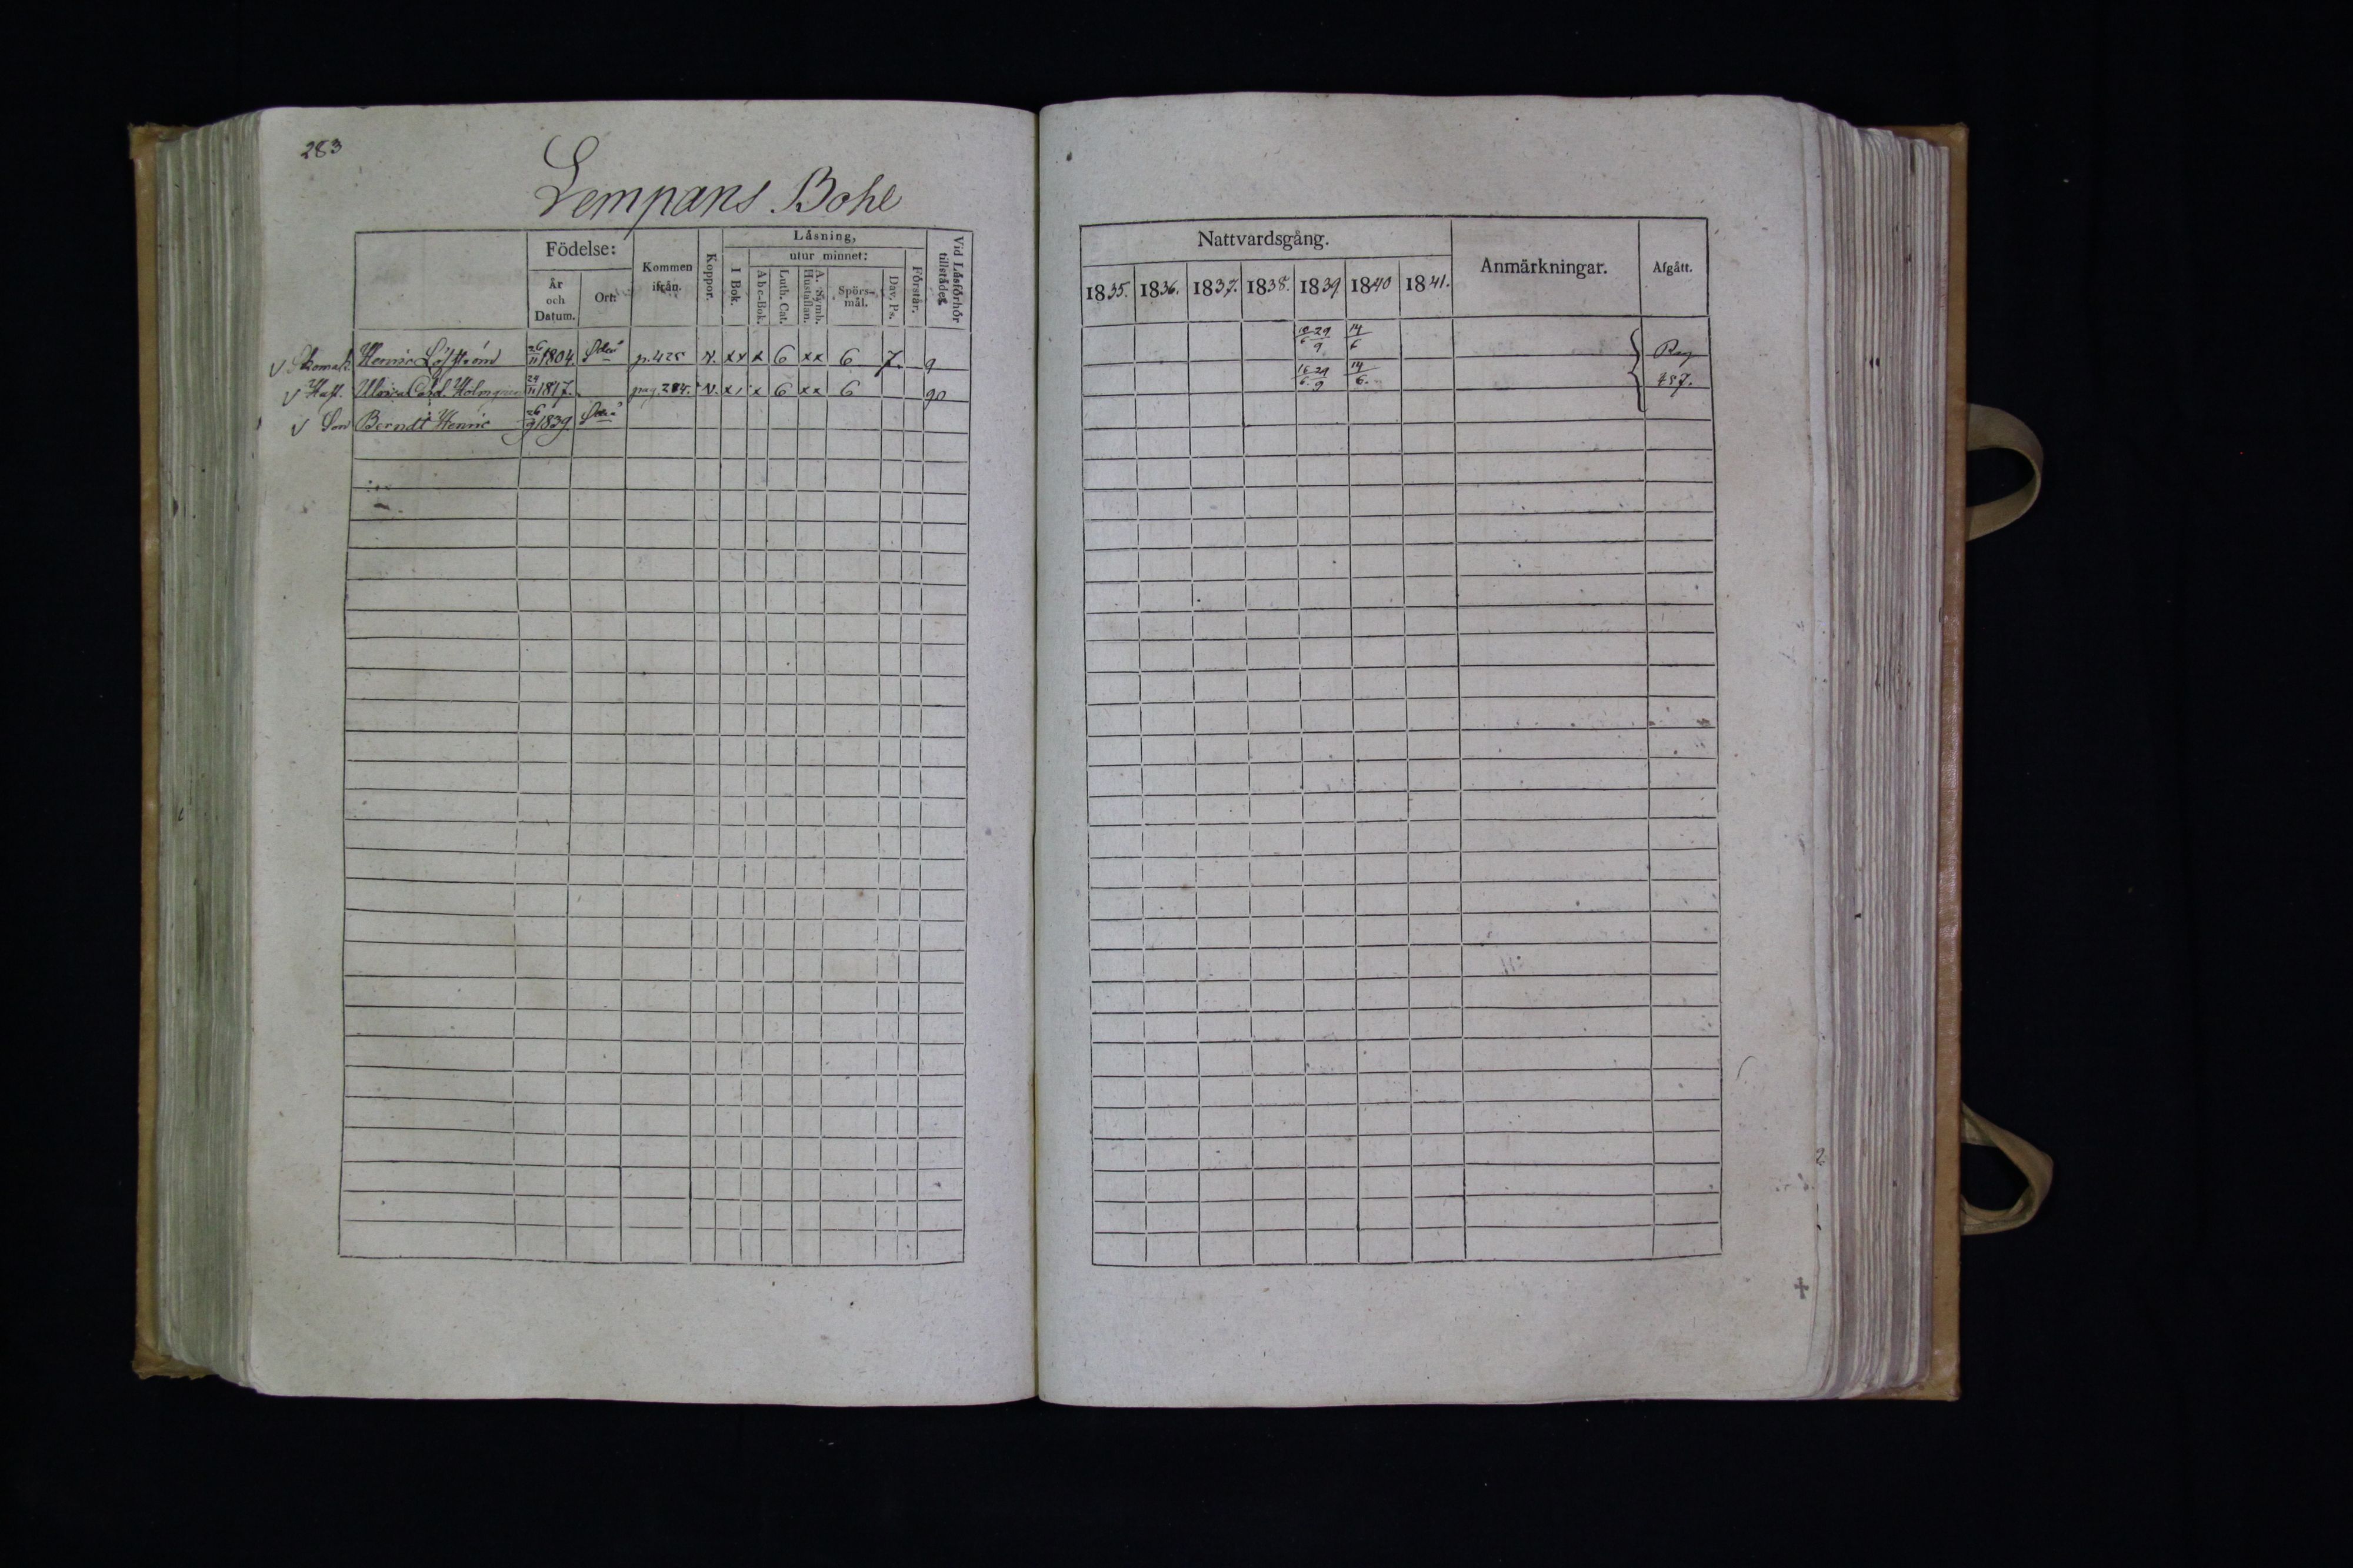 283
Lempans Bohl
Födelse: Kommen ifrån. Koppor. Läsning, Vid Läsförhör tillstädes
År och Datum. Ort: I Bok. utur minnet: Förstår.
Abc-Bok. Luth. Cat. A. Symb. Hustaflan. Spörs-mål. Dav. Ps.
v Skomak. Henric Löfström 26/11 1804. p. 428 N. xx x 6 xx 6 7. 9
v Hust. Ulrica Holmqvist 29/11 1817. pag. 284. N. x x 6 xx 6 90
v Son Berndt Henric 26/9 1839.
Nattvardsgång. Anmärkningar. Afgått.
1835. 1836. 1837. 1838. 1839 1840 1841.
29/9 14/6 Pag
29/9 14/6. 457.